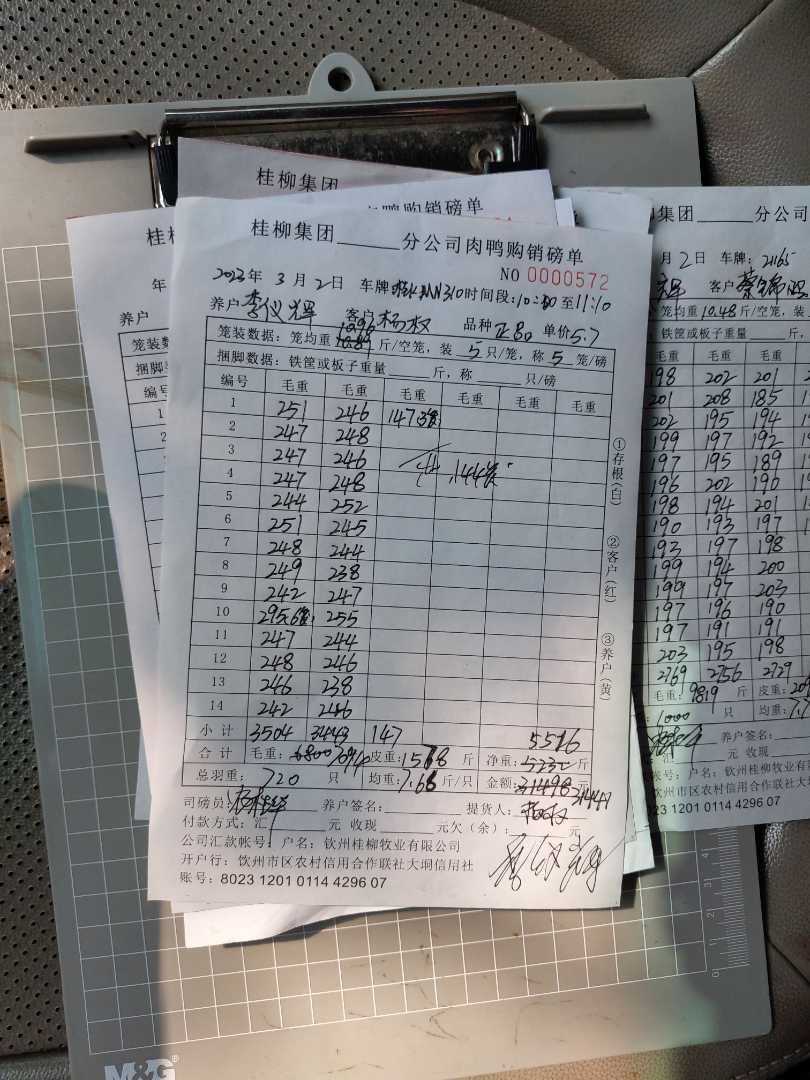 桂柳集团
肉鸭购销磅单
桂柳集团______分公司肉鸭购销磅单
NO 0000572
2023年 3月2日 车牌 310时间段:10:30至11:10
养户 李仪辉 客户 杨权 品种 正80 单价5.7
笼装数据:笼均重 10.96 斤/空笼,装 5 只/笼,称 5 笼/磅
捆脚数据:铁筐或板子重量______斤,称______只/磅
编号 毛重 毛重 毛重 毛重 毛重 毛重
1 251 246 147 3笼
2 247 248
3 247 246
4 247 248 144笼
5 244 252
6 251 245
7 248 244
8 249 238
9 242 247
10 295.6笼 255
11 247 244
12 248 246
13 246 238
14 242 246
小计 3504 3443 147 5516
合计 毛重:6800 7094 皮重:1578斤 净重:5232斤
总羽重: 720 只 均重:7.66斤/只 金额:31498 31441
司磅员: 养户签名: 提货人:杨权
付款方式:汇______元 收现______元欠(余):______元
公司汇款帐号: 户名:钦州桂柳牧业有限公司
开户行:钦州市区农村信用合作联社大垌信用社
账号:8023 1201 0114 4296 07
①存根(白)
②客户(红)
③养户(黄)
桂柳
年
养户
笼装数
捆脚
编号
集团______分公
月2日 车牌:2165
辉 客户 蔡锦
笼均重 10.48 斤/空笼,装
铁筐或板子重量______斤,
毛重 毛重 毛重
198 202 201
201 208 185
202 195 194
199 197 192
197 195 189
196 202 190
198 194 201
190 193 197
193 197 198
199 194 200
199 197 203
197 196 190
197 191 191
203 195 198
2769 2756 2729
毛重:9819 斤 皮重:209
1000 只 均重:7.7
养户签名:
元 收现
帐号: 户名:钦州桂柳牧业
钦州市区农村信用合作联社
023 1201 0114 4296 07
M&G